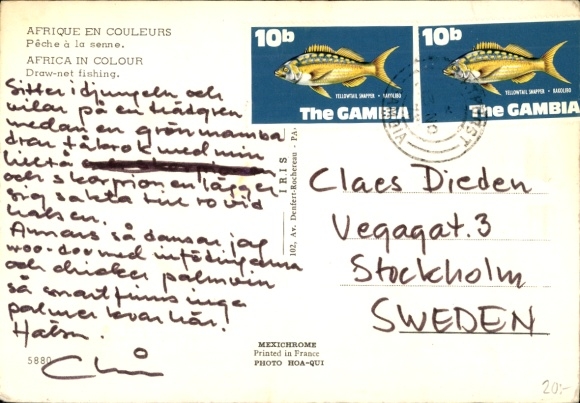 AFRIQUE EN COULEURS
Pêche à la senne.
AFRICA IN COLOUR
Draw-net fishing.
Sitter i djungeln och
vilar på en trädgren
medan en grön mamba
drar tåbrok med min
lilltå
och skorpionen lägger
sig sakta till ro vid
halsen.
Annars så dansar jag
woo-doo med infödingarna
och dricker palmvin
så snart finns inga
palmer kvar här.
Hälsn.
5880
10b
YELLOWTAIL SNAPPER · RAKOLIBO
The GAMBIA
10b
YELLOWTAIL SNAPPER · RAKOLIBO
The GAMBIA
IRIS
102, Av. Denfert-Rochereau - PA-
Claes Dieden
Vegagat. 3
Stockholm
SWEDEN
MEXICHROME
Printed in France
PHOTO HOA-QUI
20:-